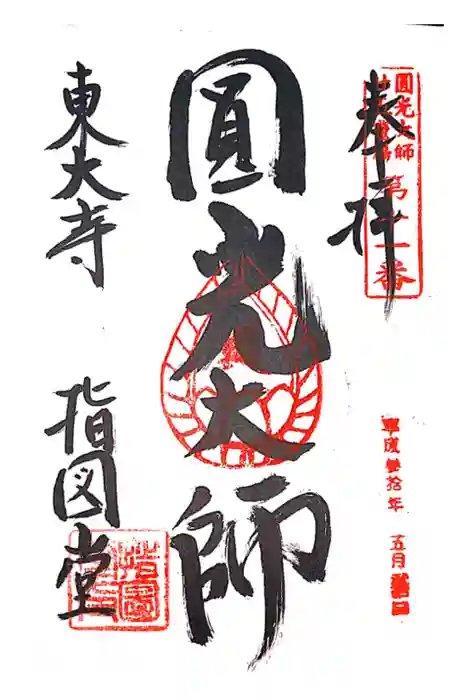 奉拝
圓光大師
第十一番
平成参拾年 五月
圓光大師
東大寺
指図堂